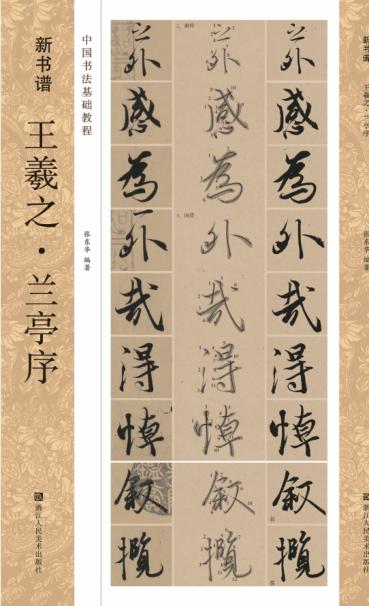 新书谱
王羲之·兰亭序
浙江人民美术出版社
中国书法基础教程
张东华 编著
外 外 外
感 感 感
為 為 為
外 外 外
哉 哉 哉
得 得 得
悼 悼 悼
叙 叙 叙
攬 攬 攬
新书谱
王羲之·兰亭序
张东华 编著
浙江人民美术出版社